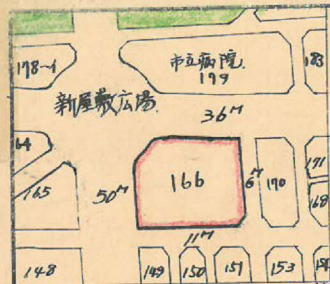 178-1
市立病院
179
183
新屋敷広場
36M
64
165
50M
166
6M
170
171
168
11M
148
149
150
151
153